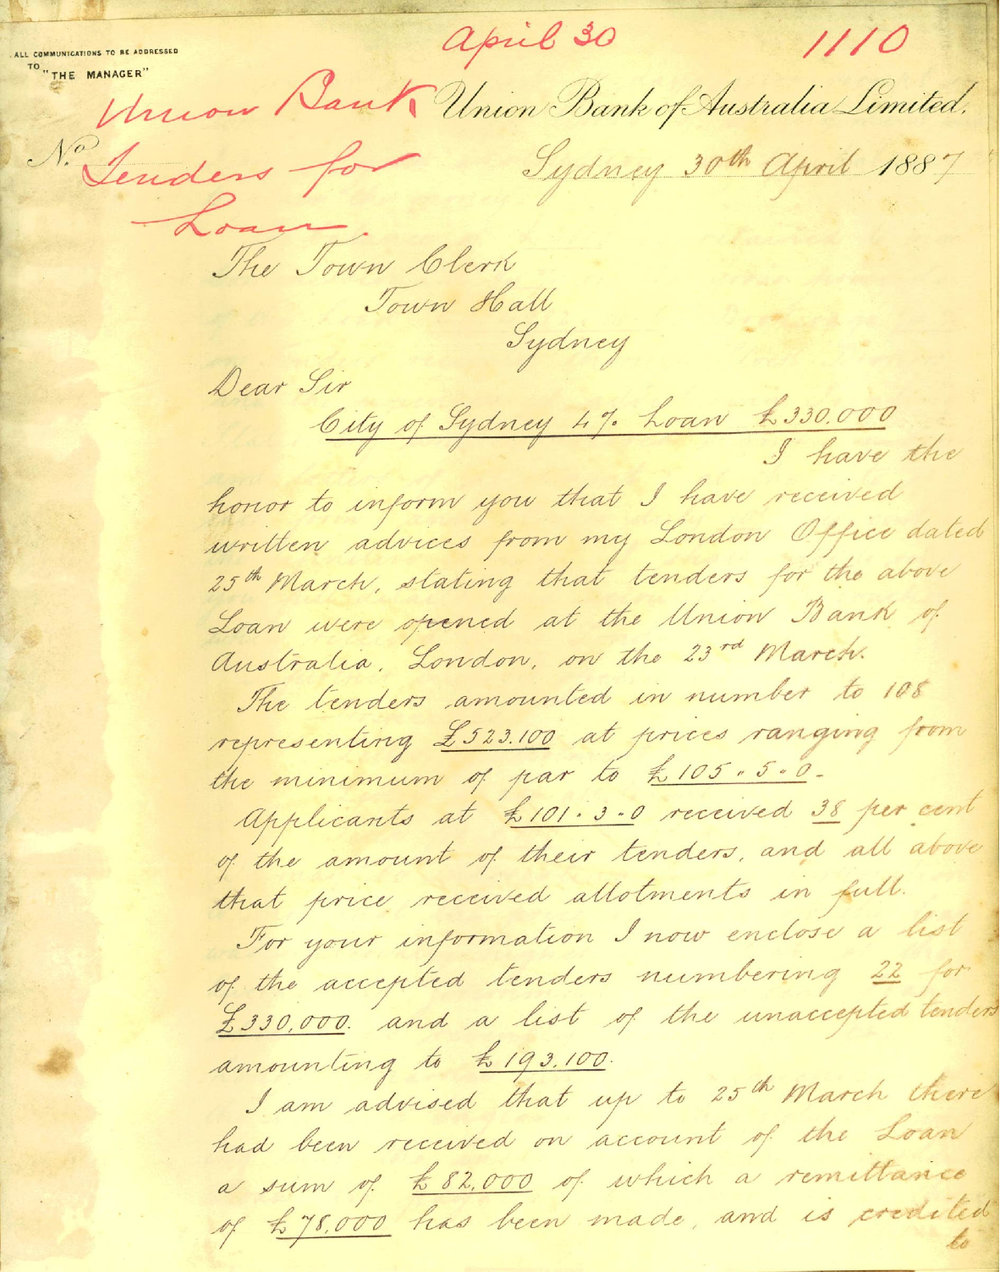 April 30 1110
ALL COMMUNICATIONS TO BE ADDRESSED
TO
"THE MANAGER"
Union Bank
Union Bank of Australia Limited.
No.
Tenders for
Loan.
Sydney 30th April 1887
The Town Clerk
Town Hall
Sydney
Dear Sir
City of Sydney 4% Loan £330,000
I have the
honor to inform you that I have received
written advices from my London Office dated
25th March, stating that tenders for the above
Loan were opened at the Union Bank of
Australia, London, on the 23rd March.
The tenders amounted in number to 108
representing £523,100 at prices ranging from
the minimum of par to £105.5.0.
Applicants at £101.3.0 received 38 per cent
of the amount of their tenders, and all above
that price received allotments in full.
For your information I now enclose a list
of the accepted tenders numbering 22 for
£330,000. and a list of the unaccepted tenders
amounting to £193,100.
I am advised that up to 25th March there
had been received on account of the Loan
a sum of £82,000 of which a remittance
of £78,000 has been made, and is credited
to